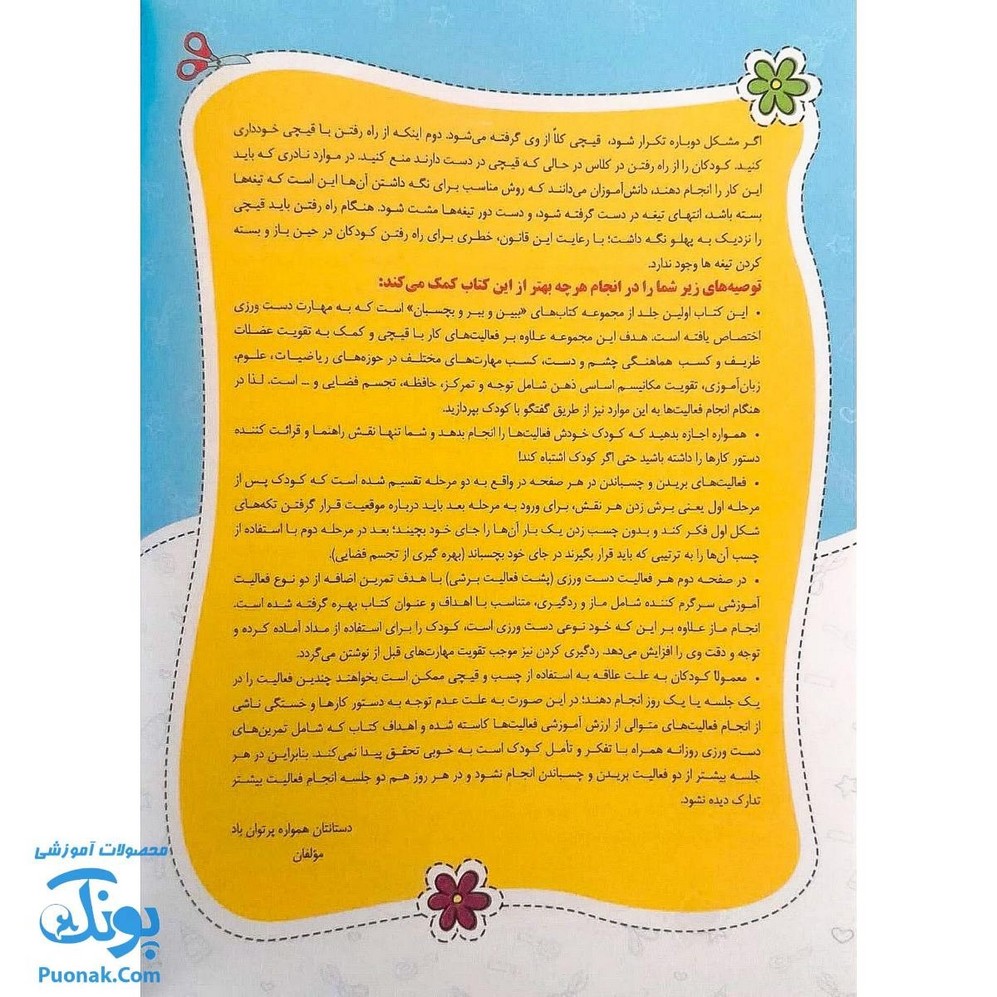 اگر مشکل دوباره تکرار شود، قیچی کلاً از وی گرفته می‌شود. دوم اینکه از راه رفتن با قیچی خودداری
کنید. کودکان را از راه رفتن در کلاس در حالی که قیچی در دست دارند منع کنید. در موارد نادری که باید
این کار را انجام دهند، دانش‌آموزان می‌دانند که روش مناسب برای نگه داشتن آن‌ها این است که تیغه‌ها
بسته باشد، انتهای تیغه در دست گرفته شود، و دست دور تیغه‌ها مشت شود. هنگام راه رفتن باید قیچی
را نزدیک به پهلو نگه داشت؛ با رعایت این قانون، خطری برای راه رفتن کودکان در حین باز و بسته
کردن تیغه ها وجود ندارد.
توصیه‌های زیر شما را در انجام هرچه بهتر از این کتاب کمک می‌کند:
• این کتاب اولین جلد از مجموعه کتاب‌های «ببین و ببر و بچسبان» است که به مهارت دست ورزی
اختصاص یافته است. هدف این مجموعه علاوه بر فعالیت‌های کار با قیچی و کمک به تقویت عضلات
ظریف و کسب هماهنگی چشم و دست، کسب مهارت‌های مختلف در حوزه‌های ریاضیات، علوم،
زبان‌آموزی، تقویت مکانیسم اساسی ذهن شامل توجه و تمرکز، حافظه، تجسم فضایی و ... است. لذا در
هنگام انجام فعالیت‌ها به این موارد نیز از طریق گفتگو با کودک بپردازید.
• همواره اجازه بدهید که کودک خودش فعالیت‌ها را انجام بدهد و شما تنها نقش راهنما و قرائت کننده
دستور کارها را داشته باشید حتی اگر کودک اشتباه کند!
• فعالیت‌های بریدن و چسباندن در هر صفحه در واقع به دو مرحله تقسیم شده است که کودک پس از
مرحله اول یعنی برش زدن هر نقش، برای ورود به مرحله بعد باید درباره موقعیت قرار گرفتن تکه‌های
شکل اول فکر کند و بدون چسب زدن یک بار آن‌ها را جای خود بچیند؛ بعد در مرحله دوم با استفاده از
چسب آن‌ها را به ترتیبی که باید قرار بگیرند در جای خود بچسباند (بهره گیری از تجسم فضایی).
• در صفحه دوم هر فعالیت دست ورزی (پشت فعالیت برشی) با هدف تمرین اضافه از دو نوع فعالیت
آموزشی سرگرم کننده شامل ماز و ردگیری، متناسب با اهداف و عنوان کتاب بهره گرفته شده است.
انجام ماز علاوه بر این که خود نوعی دست ورزی است، کودک را برای استفاده از مداد آماده کرده و
توجه و دقت وی را افزایش می‌دهد. ردگیری کردن نیز موجب تقویت مهارت‌های قبل از نوشتن می‌گردد.
• معمولاً کودکان به علت علاقه به استفاده از چسب و قیچی ممکن است بخواهند چندین فعالیت را در
یک جلسه یا یک روز انجام دهند؛ در این صورت به علت عدم توجه به دستور کارها و خستگی ناشی
از انجام فعالیت‌های متوالی از ارزش آموزشی فعالیت‌ها کاسته شده و اهداف کتاب که شامل تمرین‌های
دست ورزی روزانه همراه با تفکر و تأمل کودک است به خوبی تحقق پیدا نمی‌کند. بنابراین در هر
جلسه بیشتر از دو فعالیت بریدن و چسباندن انجام نشود و در هر روز هم دو جلسه انجام فعالیت بیشتر
تدارک دیده نشود.
دستانتان همواره پرتوان باد
مؤلفان
محصولات آموزشی
پونک
Puonak.Com